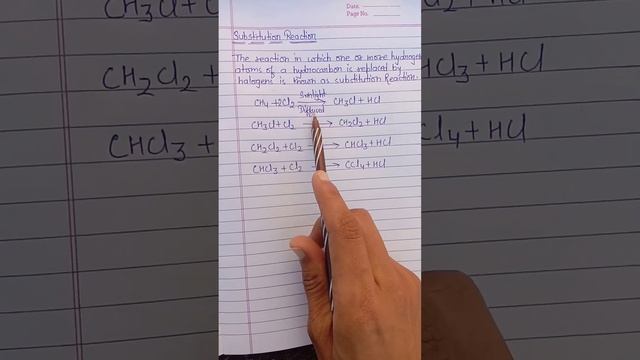 Date:
Page No.
Substitution Reaction
The reaction in which one or more hydrogen
atoms of a hydrocarbon is replaced by
halogens is known as substitution Reaction.
CH4 + 2Cl2 Sunlight Diffused CH3Cl + HCl
CH3Cl + Cl2 → CH2Cl2 + HCl
CH2Cl2 + Cl2 → CHCl3 + HCl
CHCl3 + Cl2 → CCl4 + HCl
CH2Cl2 +
CHCl3 +
Cl3 + HCl
Cl4 + HCl